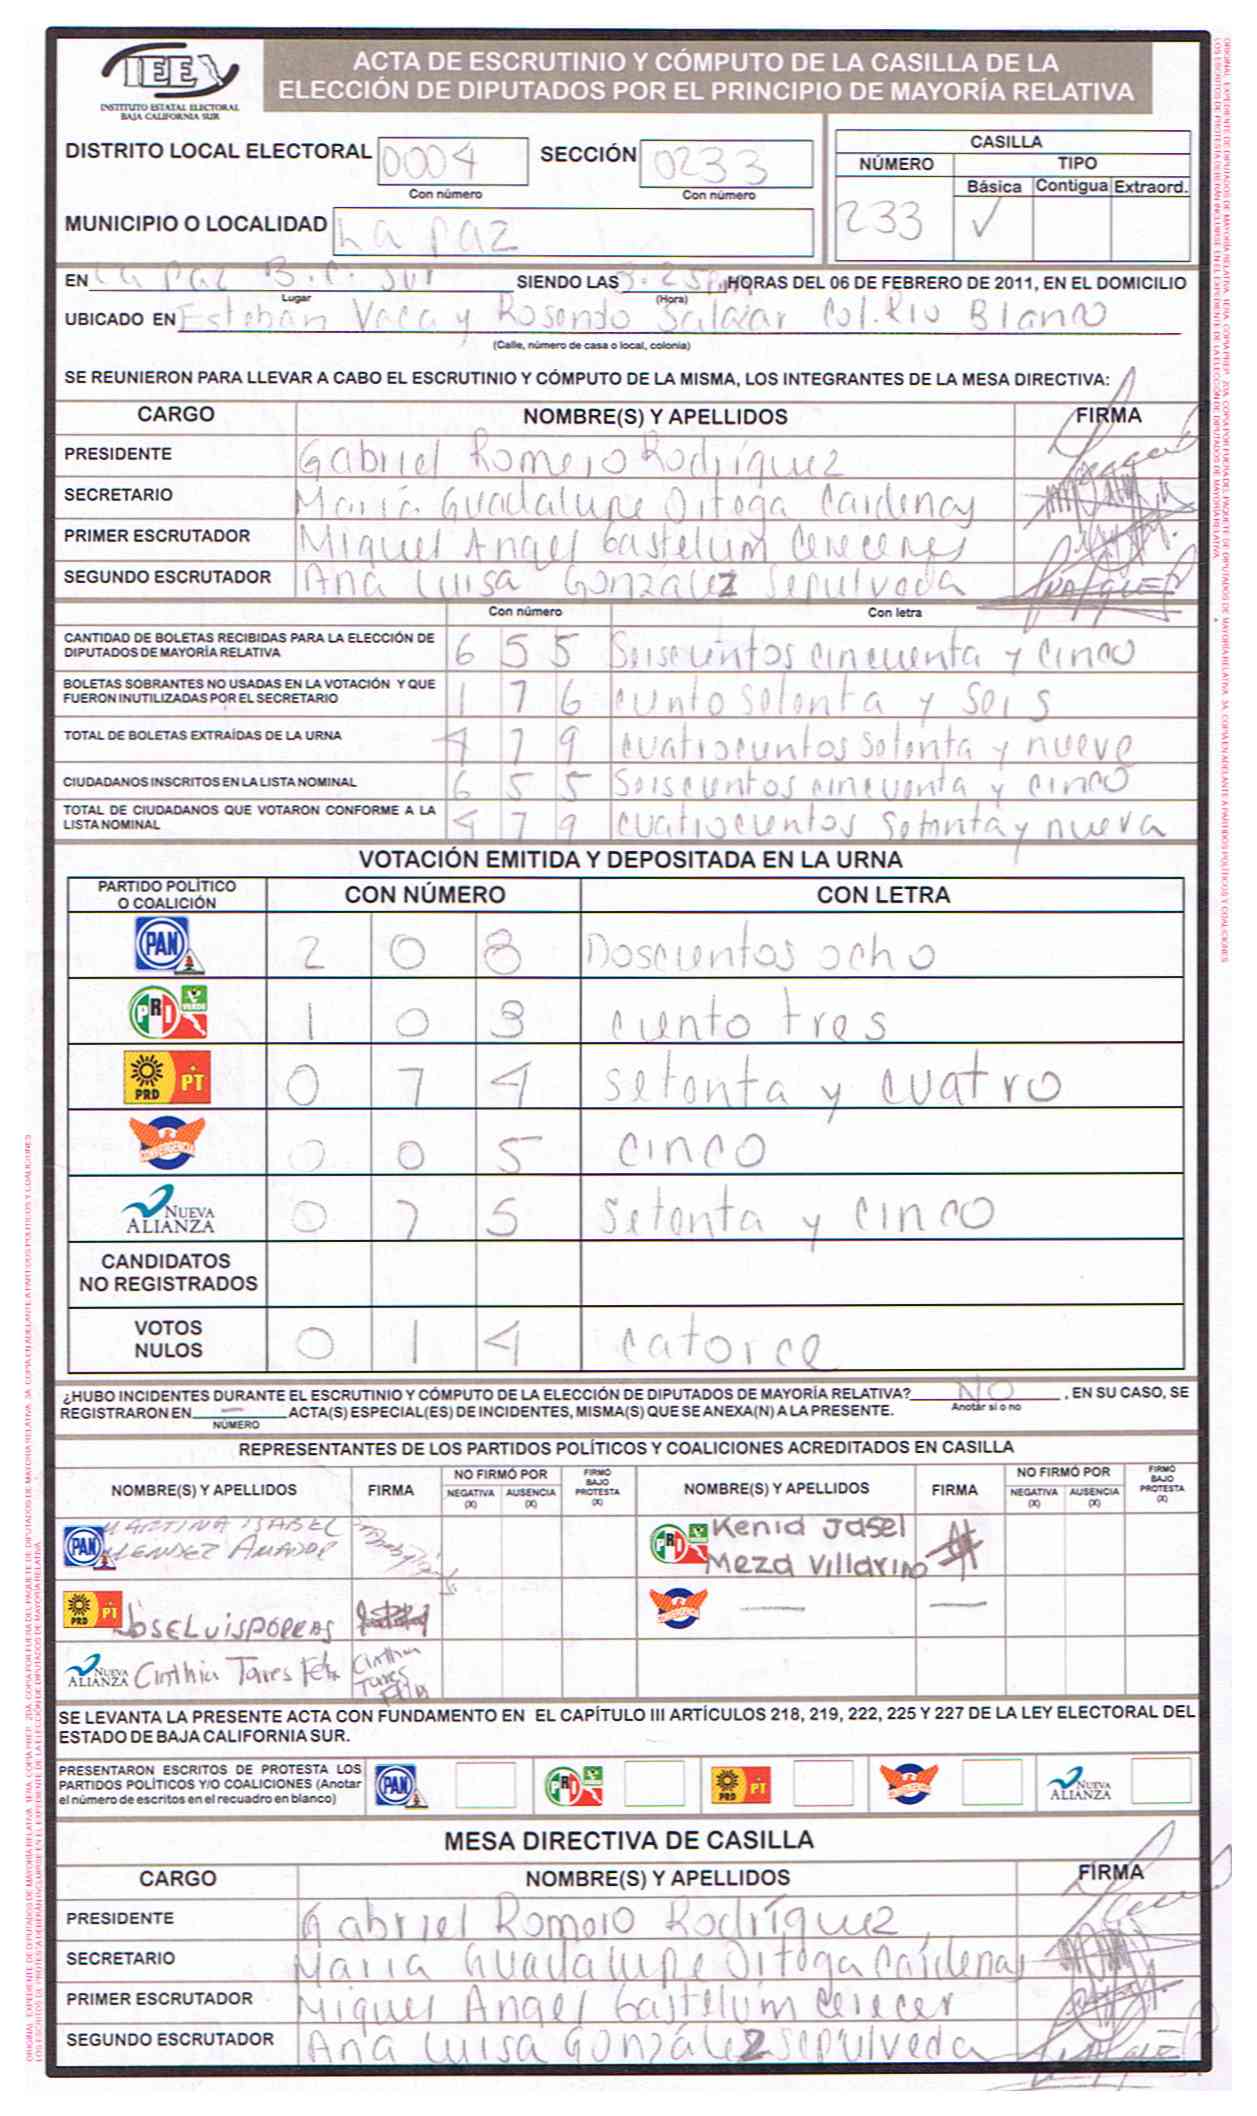 IEEX
INSTITUTO ESTATAL ELECTORAL
BAJA CALIFORNIA SUR
ACTA DE ESCRUTINIO Y CÓMPUTO DE LA CASILLA DE LA
ELECCIÓN DE DIPUTADOS POR EL PRINCIPIO DE MAYORÍA RELATIVA
DISTRITO LOCAL ELECTORAL 0004 SECCIÓN 0233
Con número Con número
CASILLA
NÚMERO TIPO
Básica Contigua Extraord.
233 ✓
MUNICIPIO O LOCALIDAD La Paz
EN La Paz B.C. Sur SIENDO LAS HORAS DEL 06 DE FEBRERO DE 2011, EN EL DOMICILIO
Lugar (Hora)
UBICADO EN Esteban Vaca y Rosendo Salazar Col. Rio Blanco
(Calle, número de casa o local, colonia)
SE REUNIERON PARA LLEVAR A CABO EL ESCRUTINIO Y CÓMPUTO DE LA MISMA, LOS INTEGRANTES DE LA MESA DIRECTIVA:
CARGO NOMBRE(S) Y APELLIDOS FIRMA
PRESIDENTE Gabriel Romero Rodríguez
SECRETARIO María Guadalupe Ortega Cardenas
PRIMER ESCRUTADOR Miguel Angel Gastelum
SEGUNDO ESCRUTADOR Ana Luisa González Sepulveda
Con número Con letra
CANTIDAD DE BOLETAS RECIBIDAS PARA LA ELECCIÓN DE
DIPUTADOS DE MAYORÍA RELATIVA 6 5 5 Seiscientos cincuenta y cinco
BOLETAS SOBRANTES NO USADAS EN LA VOTACIÓN Y QUE
FUERON INUTILIZADAS POR EL SECRETARIO 1 7 6 ciento setenta y seis
TOTAL DE BOLETAS EXTRAÍDAS DE LA URNA 4 7 9 cuatrocientos setenta y nueve
CIUDADANOS INSCRITOS EN LA LISTA NOMINAL 6 5 5 Seiscientos cincuenta y cinco
TOTAL DE CIUDADANOS QUE VOTARON CONFORME A LA
LISTA NOMINAL 4 7 9 cuatrocientos setenta y nueva
VOTACIÓN EMITIDA Y DEPOSITADA EN LA URNA
PARTIDO POLÍTICO
O COALICIÓN CON NÚMERO CON LETRA
PAN 2 0 8 Doscientos ocho
PRI VERDE 1 0 3 ciento tres
PRD PT 0 7 4 setenta y cuatro
CONVERGENCIA 0 0 5 cinco
NUEVA ALIANZA 0 7 5 setenta y cinco
CANDIDATOS
NO REGISTRADOS
VOTOS
NULOS 0 1 4 catorce
¿HUBO INCIDENTES DURANTE EL ESCRUTINIO Y CÓMPUTO DE LA ELECCIÓN DE DIPUTADOS DE MAYORÍA RELATIVA? NO , EN SU CASO, SE
Anotar sí o no
REGISTRARON EN — ACTA(S) ESPECIAL(ES) DE INCIDENTES, MISMA(S) QUE SE ANEXA(N) A LA PRESENTE.
NÚMERO
REPRESENTANTES DE LOS PARTIDOS POLÍTICOS Y COALICIONES ACREDITADOS EN CASILLA
NOMBRE(S) Y APELLIDOS FIRMA NO FIRMÓ POR NEGATIVA (X) AUSENCIA (X) FIRMÓ BAJO PROTESTA (X) NOMBRE(S) Y APELLIDOS FIRMA NO FIRMÓ POR NEGATIVA (X) AUSENCIA (X) FIRMÓ BAJO PROTESTA (X)
PAN MARTINA ISABEL
MENDEZ AMADOR
PRI Kenia Jasel
Meza Villarino
PRD PT JOSE LUIS PORRAS
CONVERGENCIA — —
NUEVA ALIANZA Cinthia Tares Cinthia
Tares
SE LEVANTA LA PRESENTE ACTA CON FUNDAMENTO EN EL CAPÍTULO III ARTÍCULOS 218, 219, 222, 225 Y 227 DE LA LEY ELECTORAL DEL
ESTADO DE BAJA CALIFORNIA SUR.
PRESENTARON ESCRITOS DE PROTESTA LOS
PARTIDOS POLÍTICOS Y/O COALICIONES (Anotar
el número de escritos en el recuadro en blanco)
PAN PRI VERDE PRD PT CONVERGENCIA NUEVA ALIANZA
MESA DIRECTIVA DE CASILLA
CARGO NOMBRE(S) Y APELLIDOS FIRMA
PRESIDENTE Gabriel Romero Rodríguez
SECRETARIO Maria Guadalupe Ortega Cárdenas
PRIMER ESCRUTADOR Miguel Angel Gastelum Cerecer
SEGUNDO ESCRUTADOR Ana Luisa González Sepulveda